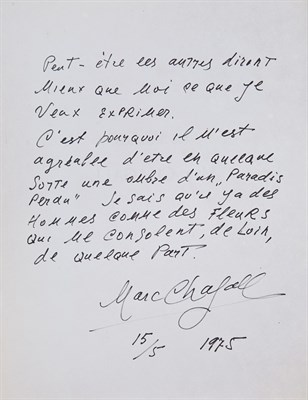 Peut-être les autres diront
Mieux que Moi ce que je
Veux exprimer.
C'est pourquoi il M'est
agréable d'être en quelque
Sorte une ombre d'un „Paradis
Perdu" Je sais qu'il y a des
Hommes comme des Fleurs
qui Me consolent, de Loin,
de quelque Part.
Marc Chagall
15/5 1975